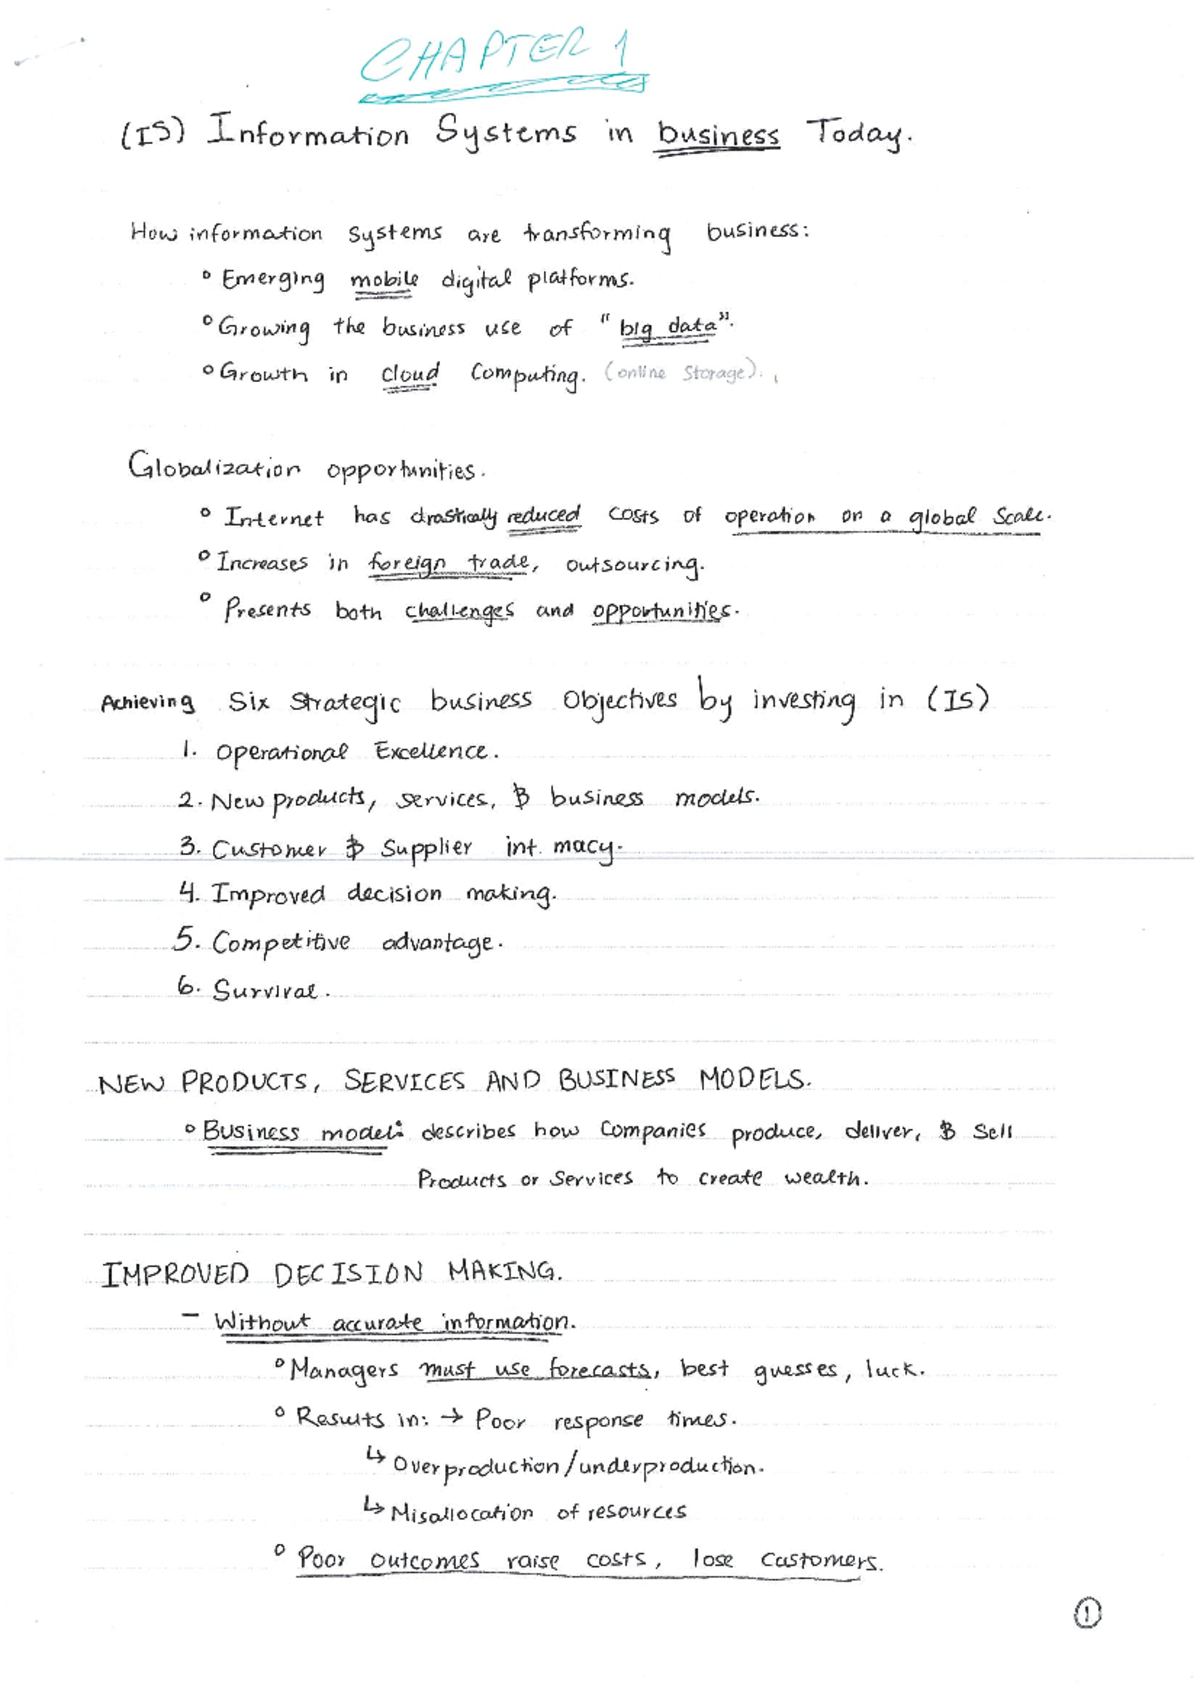 CHAPTER 1
(IS) Information Systems in business Today.
How information systems are transforming business:
° Emerging mobile digital platforms.
° Growing the business use of "big data".
° Growth in cloud Computing. (online Storage).
Globalization opportunities.
° Internet has drastically reduced costs of operation on a global Scale.
° Increases in foreign trade, outsourcing.
° Presents both challenges and opportunities.
Achieving Six Strategic business Objectives by investing in (IS)
1. Operational Excellence.
2. New products, services, & business models.
3. Customer & Supplier int macy.
4. Improved decision making.
5. Competitive advantage.
6. Survival.
NEW PRODUCTS, SERVICES AND BUSINESS MODELS.
° Business model: describes how Companies produce, deliver, & Sell
Products or Services to create wealth.
IMPROVED DECISION MAKING.
- Without accurate information.
° Managers must use forecasts, best guesses, luck.
° Results in: → Poor response times.
↳ Overproduction/underproduction.
↳ Misallocation of resources
° Poor outcomes raise costs, lose customers.
1